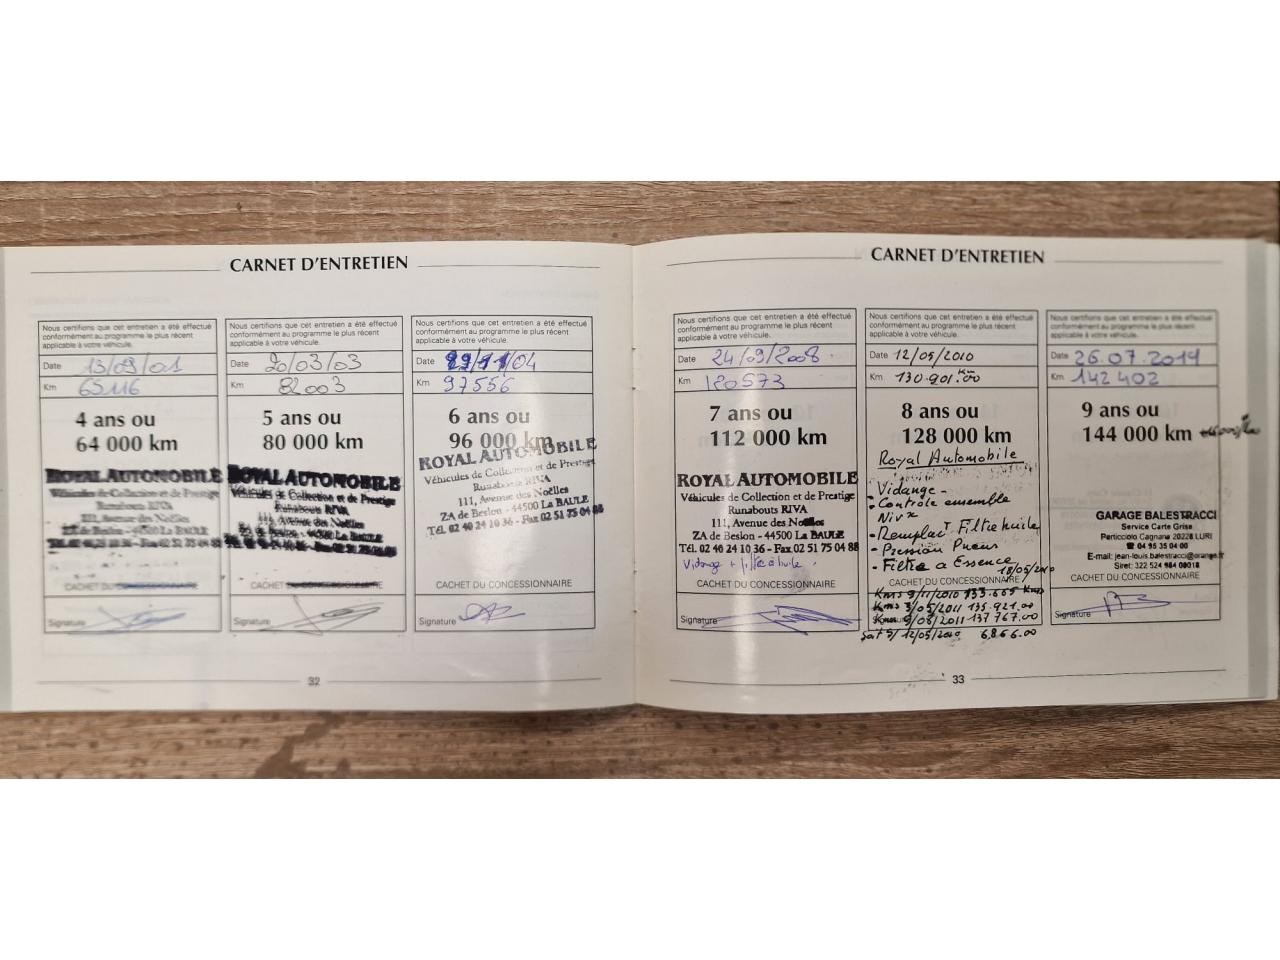 CARNET D'ENTRETIEN
Nous certifions que cet entretien a été effectué
conformément au programme le plus récent
applicable à votre véhicule.
Date 13/09/01
Km 65116
4 ans ou
64 000 km
ROYAL AUTOMOBILE
Véhicules de Collection et de Prestige
Runabouts RIVA
111, Avenue des Noëlles
ZA de Beslon - 44500 La BAULE
CACHET DU CONCESSIONNAIRE
Signature
Nous certifions que cet entretien a été effectué
conformément au programme le plus récent
applicable à votre véhicule.
Date 20/03/03
Km 82003
5 ans ou
80 000 km
ROYAL AUTOMOBILE
Véhicules de Collection et de Prestige
Runabouts RIVA
111, Avenue des Noëlles
ZA de Beslon - 44500 La BAULE
CACHET DU CONCESSIONNAIRE
Signature
Nous certifions que cet entretien a été effectué
conformément au programme le plus récent
applicable à votre véhicule.
Date /11/04
Km 97556
6 ans ou
96 000 km
ROYAL AUTOMOBILE
Véhicules de Collection et de Prestige
Runabouts RIVA
111, Avenue des Noëlles
ZA de Beslon - 44500 La BAULE
Tél. 02 40 24 10 36 - Fax 02 51 75 04 88
CACHET DU CONCESSIONNAIRE
Signature
32
CARNET D'ENTRETIEN
Nous certifions que cet entretien a été effectué
conformément au programme le plus récent
applicable à votre véhicule.
Date 24/09/2008.
Km 120573
7 ans ou
112 000 km
ROYAL AUTOMOBILE
Véhicules de Collection et de Prestige
Runabouts RIVA
111, Avenue des Noëlles
ZA de Beslon - 44500 La BAULE
Tél. 02 40 24 10 36 - Fax 02 51 75 04 88
Vidange + filtre à huile.
CACHET DU CONCESSIONNAIRE
Signature
Nous certifions que cet entretien a été effectué
conformément au programme le plus récent
applicable à votre véhicule.
Date 12/05/2010
Km 130.901.00 Km
8 ans ou
128 000 km
Royal Automobile
- Vidange -
- Contrôle ensemble
Nivx
- Remplact Filtre huile
- Pression Pneus
- Filtre a Essence
18/05/2010
CACHET DU CONCESSIONNAIRE
Kms 9/11/2010 133.665 Kms
Kms 3/05/2011 135.921.00
Kms 9/08/2011 137767.00
12/05/2010 6866.00
Nous certifions que cet entretien a été effectué
conformément au programme le plus récent
applicable à votre véhicule.
Date 26.07.2019
Km 142 402
9 ans ou
144 000 km
GARAGE BALESTRACCI
Service Carte Grise
Particciolo Cagnano 20228 LURI
☎ 04 95 35 04 00
E-mail: jean-louis.balestracci@orange.fr
Siret: 322 524 984 00018
CACHET DU CONCESSIONNAIRE
Signature
33